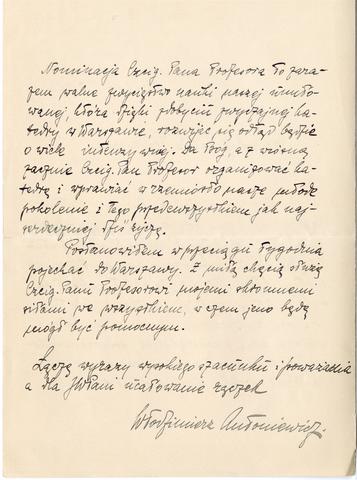 Nominacja Czcig. Pana Profesora to zara-
zem walne zwycięstwo nauki naszej umiło-
wanej, która dzięki zdobyciu zwyczajnej ka-
tedry w Warszawie, rozwijać się odtąd będzie
o wiele intenzywniej. Da Bóg, a z wiosną
zacznie Czcig. Pan Profesor organizować ka-
tedrę i wprawiać w rzemiosło nasze młode
pokolenie i tego przedewszystkiem jak naj-
serdeczniej dziś życzę.
Postanowiłem w przeciągu tygodnia
pojechać do Warszawy. Z miłą chęcią służę
Czcig. Panu Profesorowi mojemi skromnemi
siłami we wszystkiem, w czem jeno będę
mógł być pomocnym.
Łączę wyrazy wysokiego szacunku i poważania
a dla JWPani ucałowanie rączek
Włodzimierz Antoniewicz.